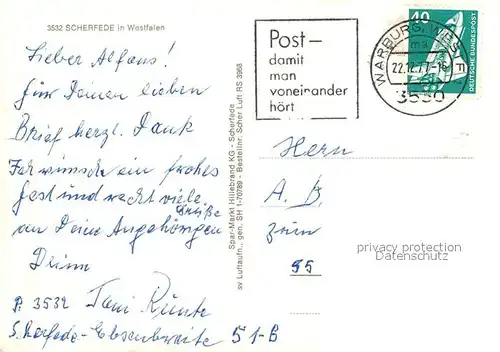 3532 SCHERFEDE in Westfalen
Lieber Alfons!
Für Deinen lieben
Brief herzl. Dank
Dir wünsche ein frohes
Fest und recht viele
Grüße
an Deine Angehörigen
Deine
P: 3532 Toni
Scherfede - 51-B
Spar-Markt Hillebrand KG - Scherfede
sv Luftaufn., gen. SH 1-70789 - Bestellnr. Scher Luft RS 3968
Post—
damit
man
voneinander
hört
WARBURG, WESTF
ma
22.12.77-16
3530
40
DEUTSCHE BUNDESPOST
Herrn
A. B.
privacy protection
Datenschutz